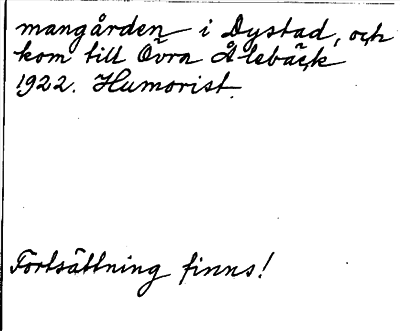 mangården i Dystad, och
kom till Övra Ålebäck
1922. Humorist.
Fortsättning finns!